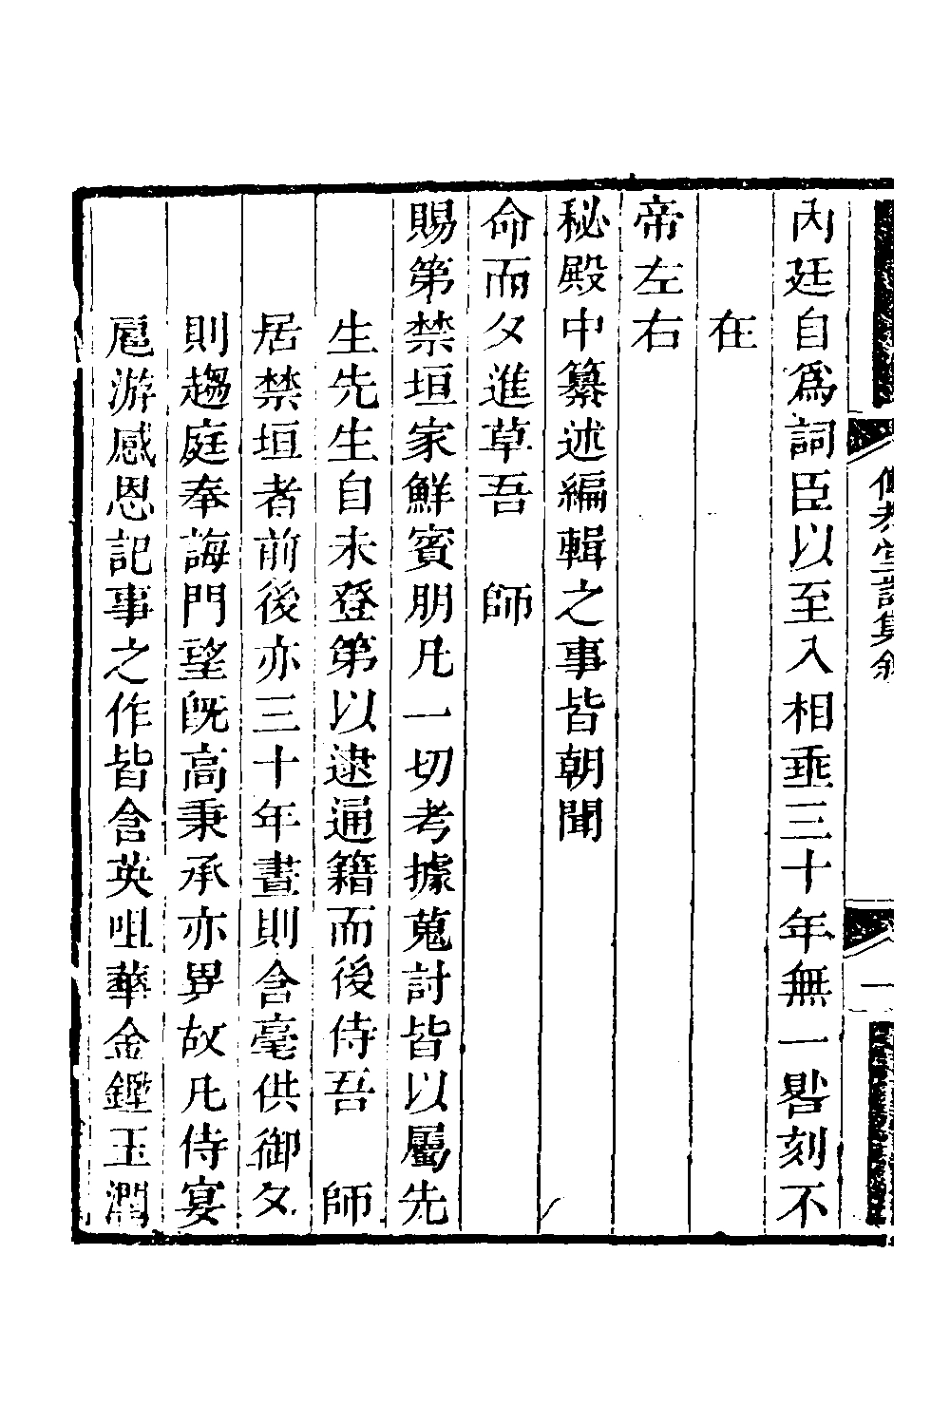 內廷自爲詞臣以至入相垂三十年無一晷刻不
在
帝左右
秘殿中纂述編輯之事皆朝聞
命而夕進草吾　師
賜第禁垣家鮮賓朋凡一切考據蒐討皆以屬先
生先生自未登第以逮通籍而後侍吾　師
居禁垣者前後亦三十年晝則含毫供御夕
則趨庭奉誨門望旣高秉承亦異故凡侍宴
扈游感恩記事之作皆含英咀華金鏗玉潤
堂詩集
一